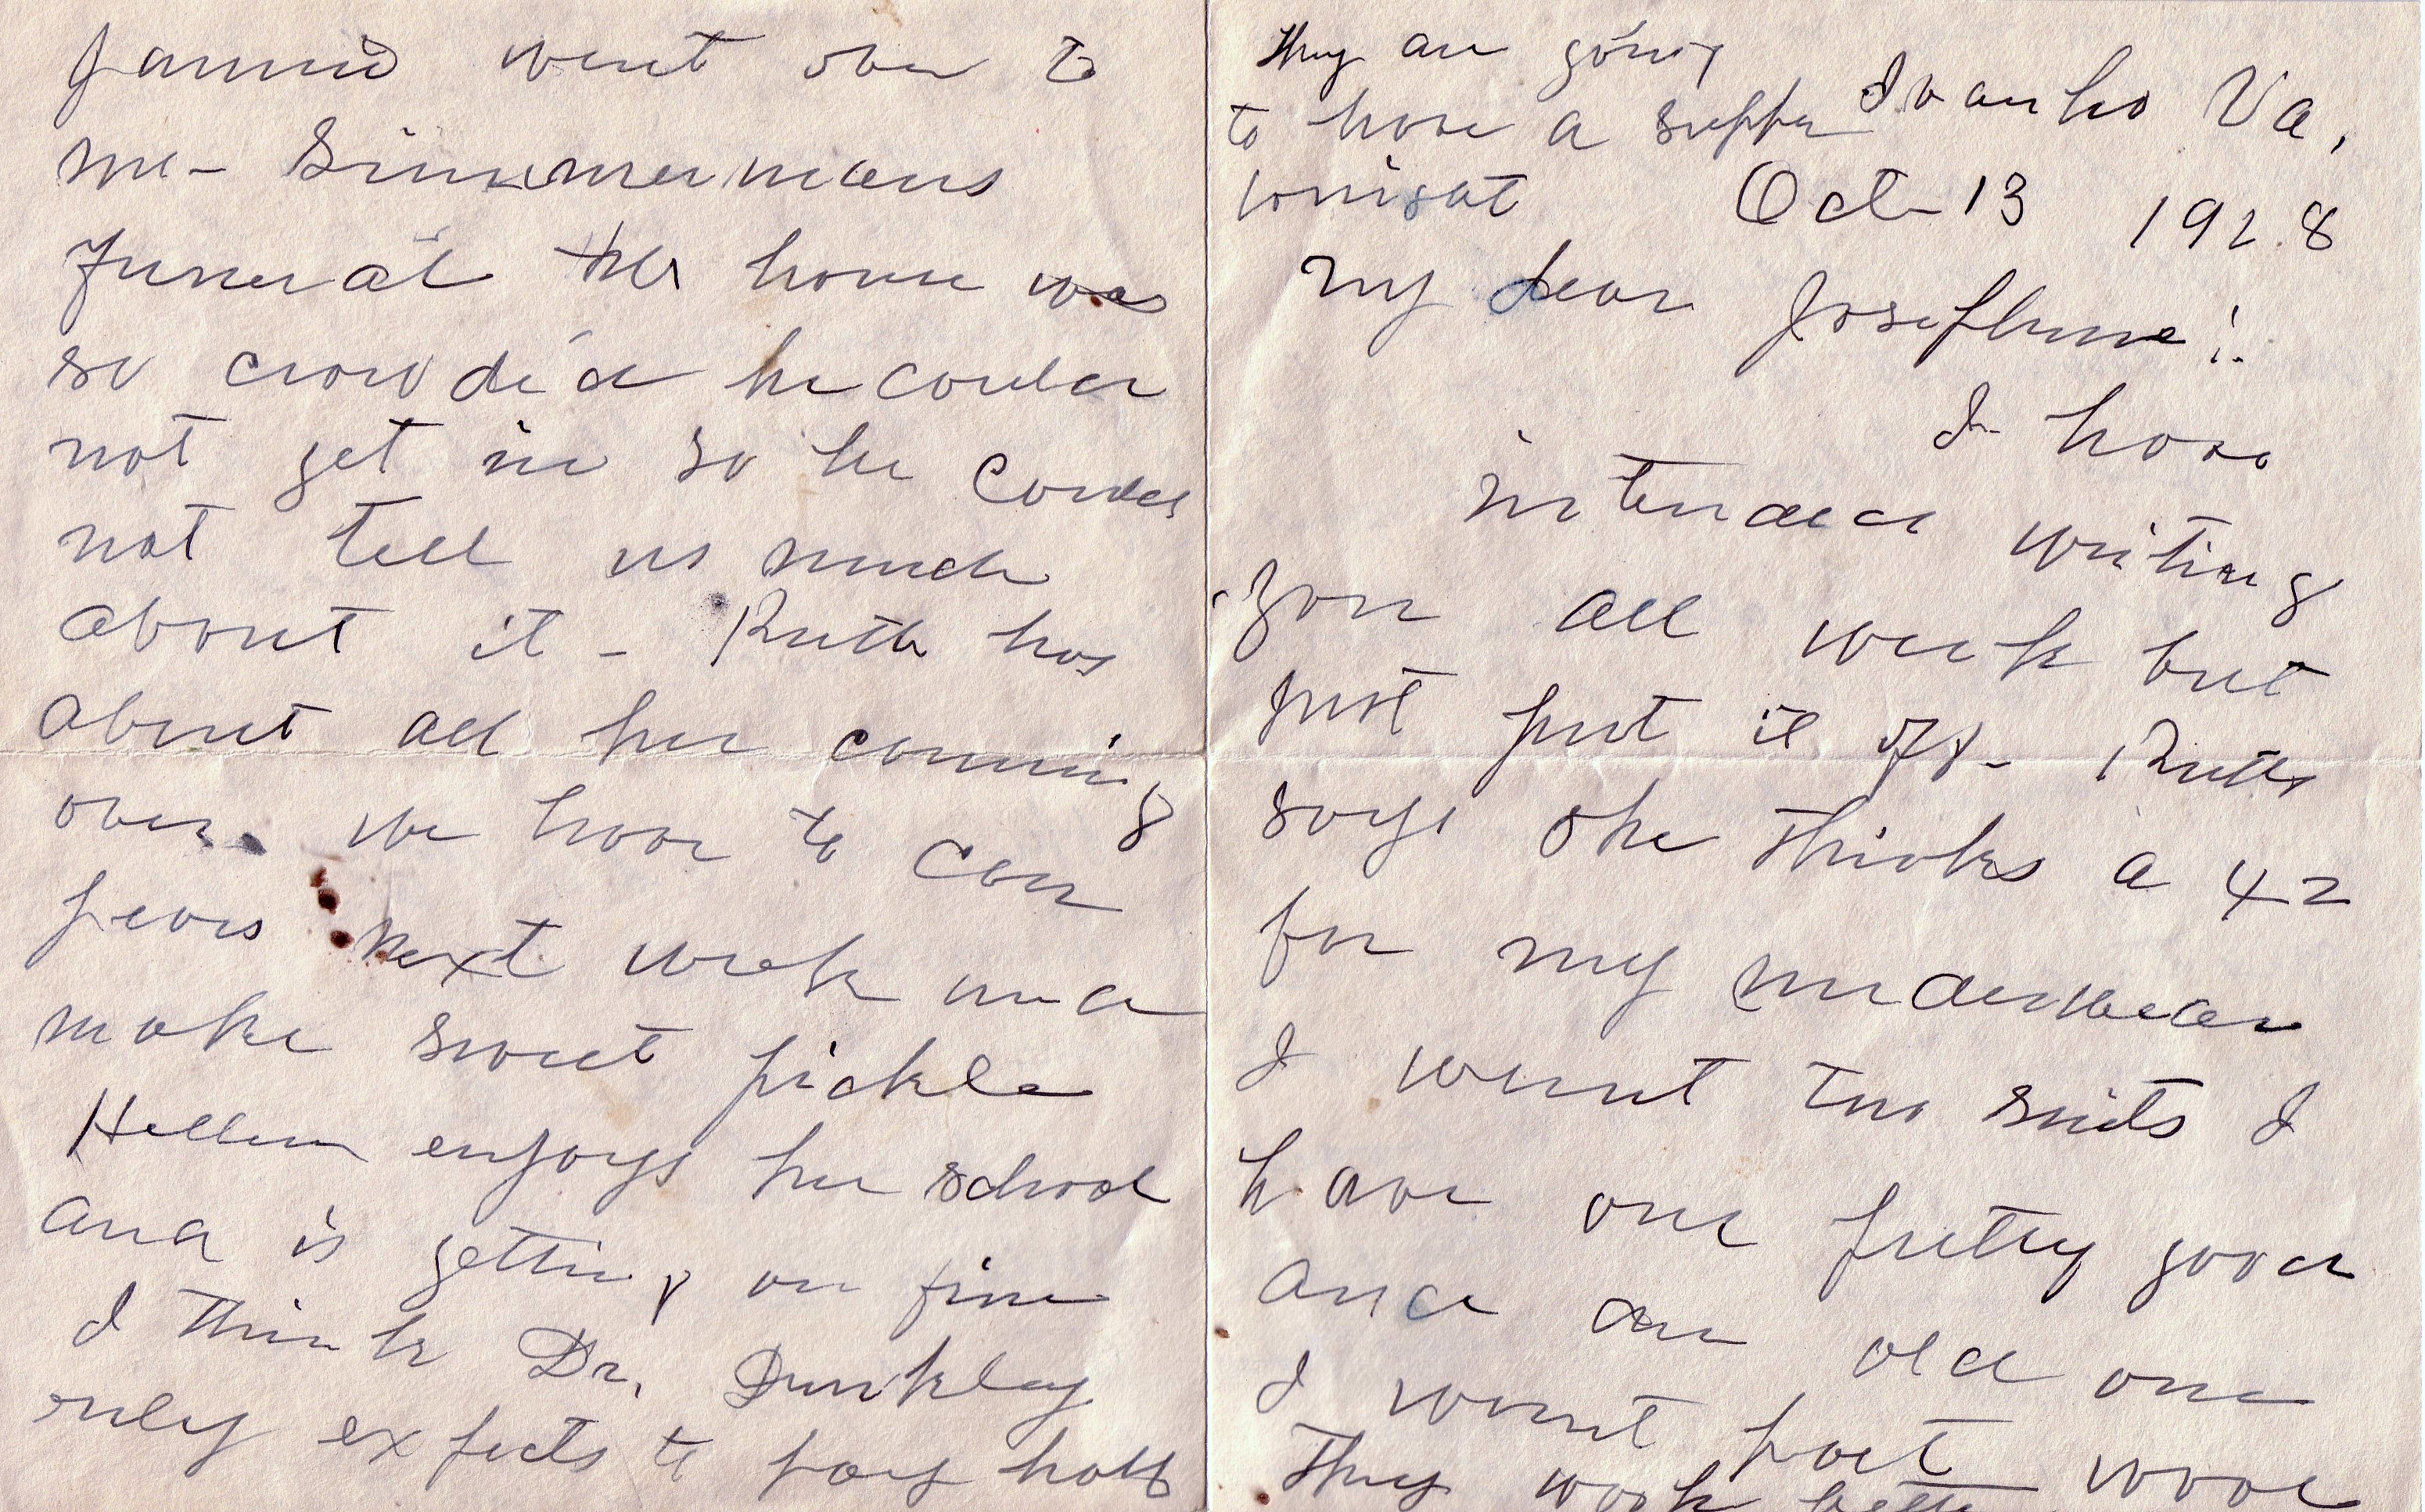 went over to
Mr- Simmermans
funeral the house was
so crowded he could
not get in so he could
not tell us much
about it - Ruth has
about all her canning
over. we have to can
pears next week and
make sweet pickle
Hellen enjoys her school
and is getting on fine
I think Dr. Dunkley
only expects to pay half
They are going
to have a supper
tonight
Ivanho Va,
Oct-13 1928
My dear Josephine!
I have
intended writing
you all week but
just put it off- Ruth
says she thinks a 42
for my underwear
I want two suits I
have one pretty good
and an old one
I want part wool
They wash better